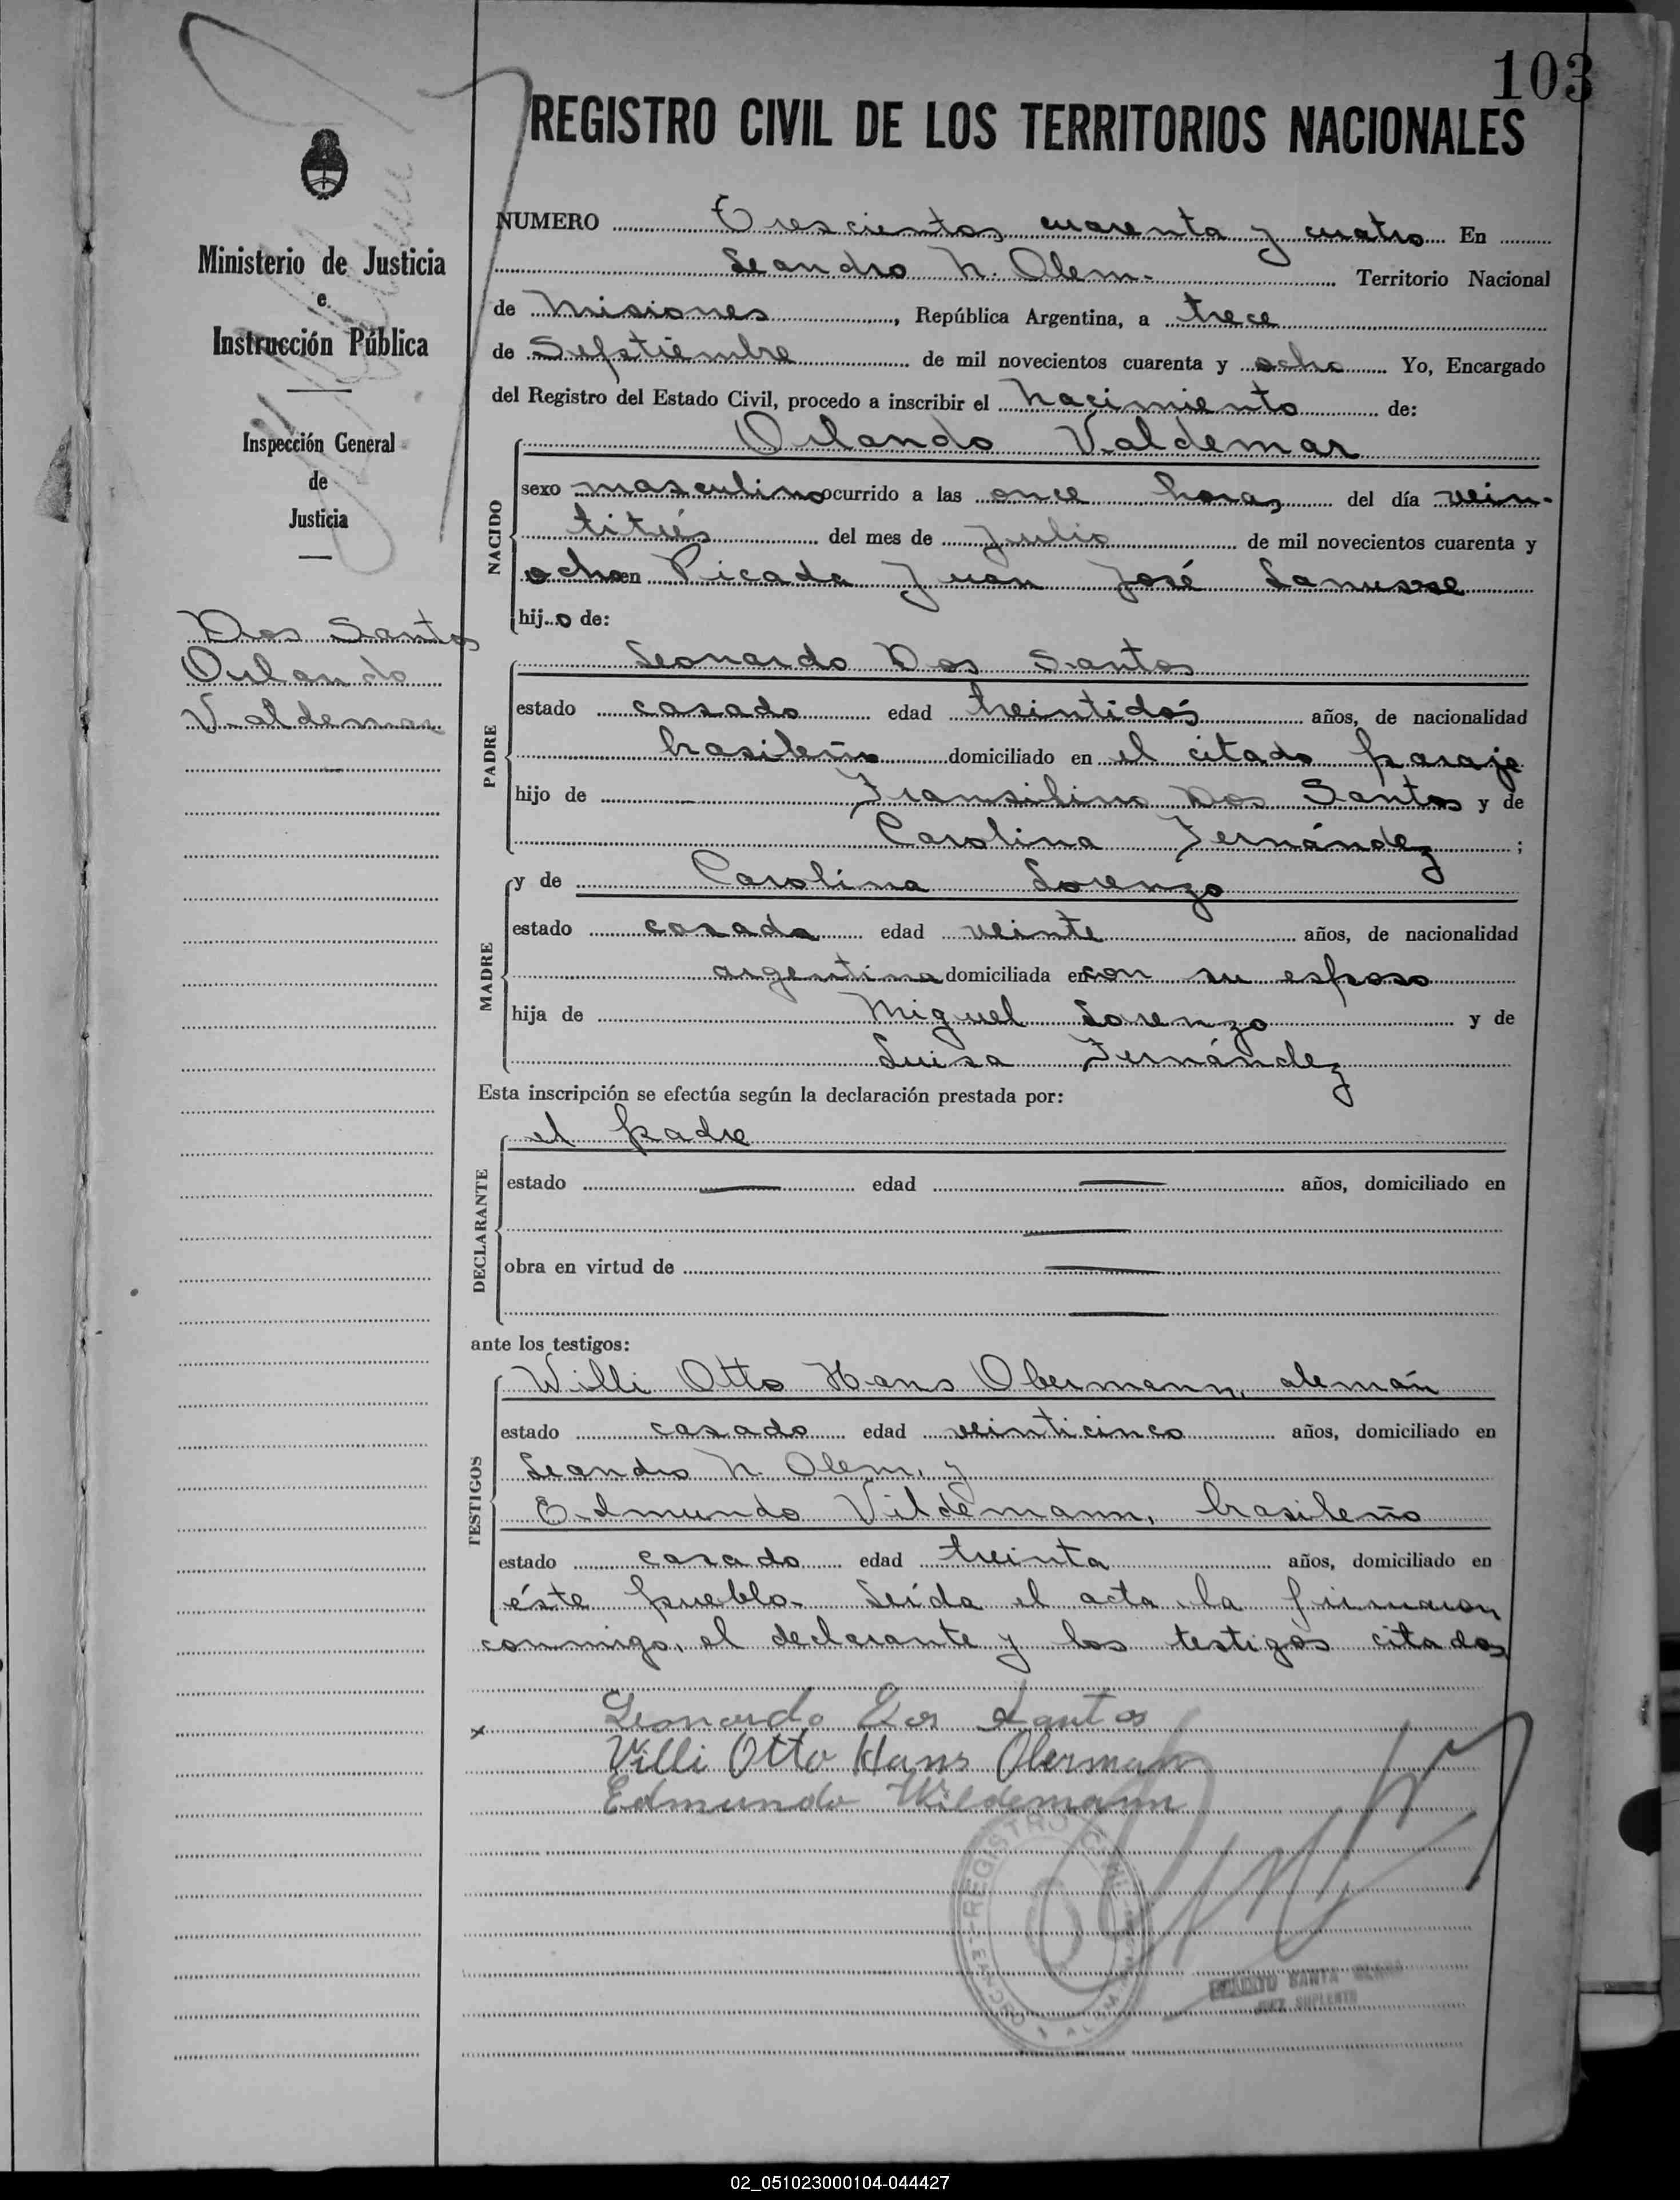 103
REGISTRO CIVIL DE LOS TERRITORIOS NACIONALES
Ministerio de Justicia
e
Instrucción Pública
Inspección General
de
Justicia
Dos Santos
Orlando
Valdemar
NUMERO Trescientos cuarenta y cuatro En
Leandro N. Alem. Territorio Nacional
de Misiones, República Argentina, a trece
de Septiembre de mil novecientos cuarenta y ocho Yo, Encargado
del Registro del Estado Civil, procedo a inscribir el nacimiento de:
Orlando Valdemar
NACIDO
sexo masculino ocurrido a las once horas, del día vein-
titrés del mes de Julio de mil novecientos cuarenta y
ocho en Picada Juan José Lanusse
hijo de:
Leonardo Dos Santos
PADRE
estado casado edad treintidós años, de nacionalidad
brasileña domiciliado en el citado paraje
hijo de Fransilino Dos Santos y de
Carolina Fernández ;
y de Carolina Lorenzo
MADRE
estado casada edad veinte años, de nacionalidad
argentina domiciliada en con su esposo
hija de Miguel Lorenzo y de
Luisa Fernández
Esta inscripción se efectúa según la declaración prestada por:
el padre
DECLARANTE
estado — edad — años, domiciliado en
—
obra en virtud de —
—
ante los testigos:
Willi Otto Hans Obermann, alemán
TESTIGOS
estado casado edad veinticinco años, domiciliado en
Leandro N. Alem, y
Edmundo Vildemann, brasileño
estado casado edad treinta años, domiciliado en
éste pueblo. Leída el acta la firmaron
conmigo, el declarante y los testigos citados
x Leonardo Dos Santos
Villi Otto Hans Oberman
Edmundo Wildemann
REGISTRO CIVIL
SANTA
JUEZ SUPLENTE
02_051023000104-044427